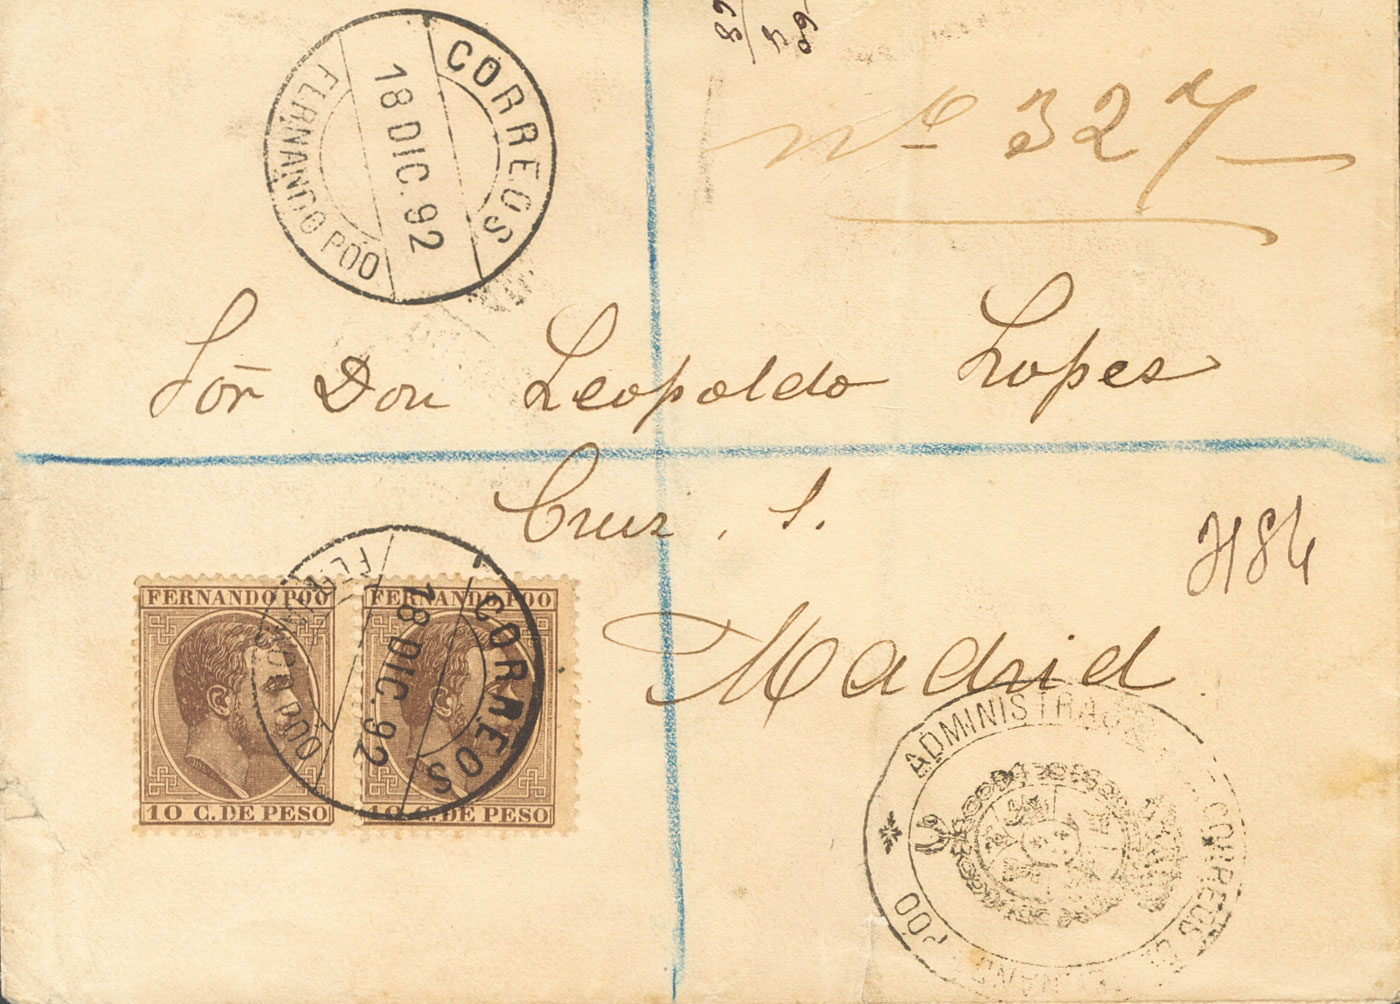 CORREOS
18 DIC. 92
FERNANDO PÓO
Nº 327
Sor Don Leopoldo Lopes
Cruz. 1.
Madrid
FERNANDO POO
10 C. DE PESO
FERNANDO POO
10 C. DE PESO
CORREOS
18 DIC. 92
FERNANDO PÓO
ADMINISTRACION DE CORREOS
PÓO